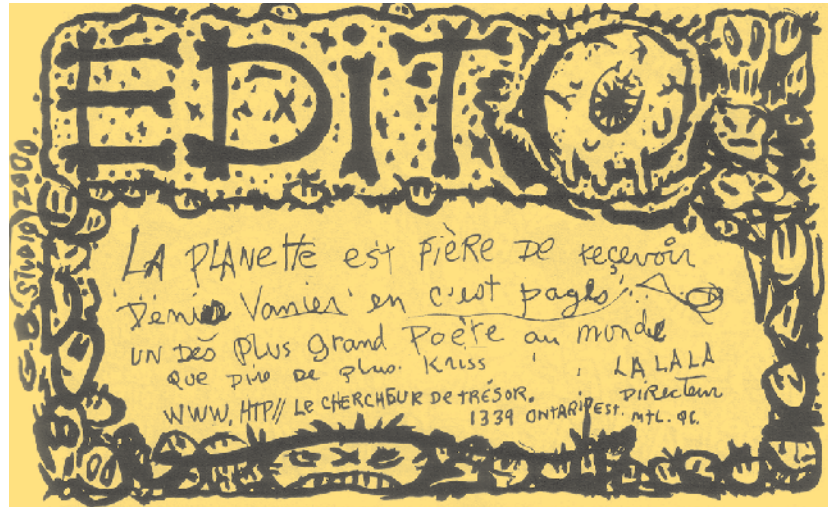 EDITO
G.B. STUDIO 2000
LA PLANETTE est FIÈRE DE reçevoir
Denis Vanier en c'est pages!...
UN DES PLUS grand Poète au monde
QUE DIRE DE plus. Kriss LA LA LA
DIRecteur
WWW. HTP// LE CHERCHEUR DE TRÉSOR.
1339 ONTARIO EST. MTL. QC.